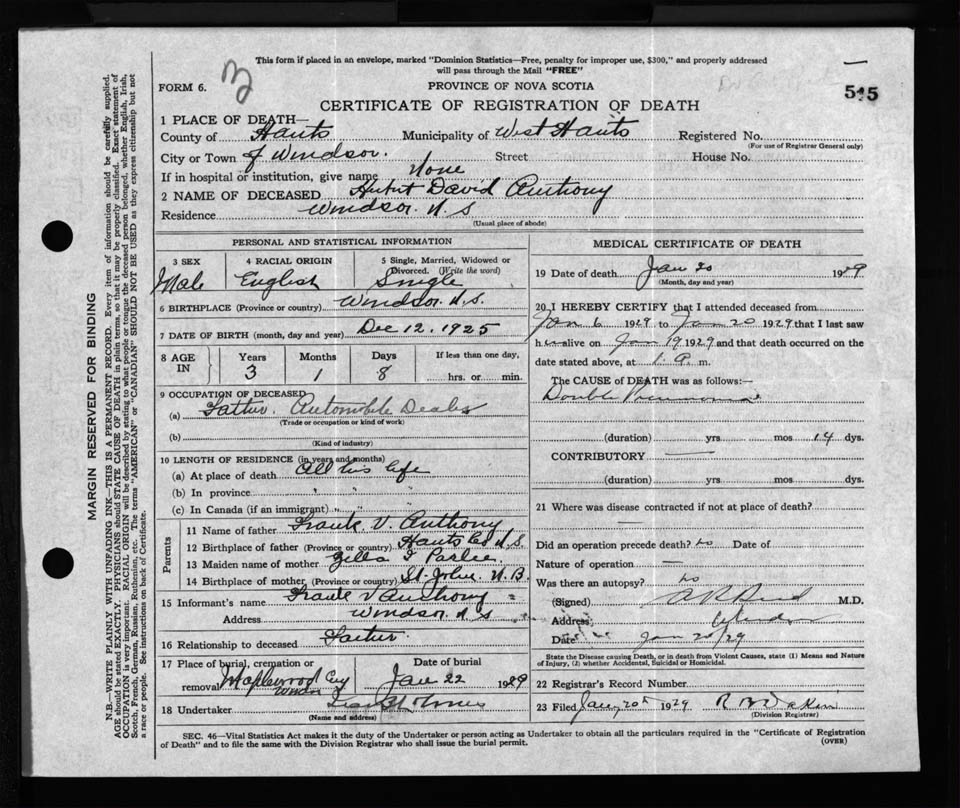 This form if placed in an envelope, marked "Dominion Statistics—Free, penalty for improper use, $300," and properly addressed
will pass through the Mail "FREE"
FORM 6.
PROVINCE OF NOVA SCOTIA
545
CERTIFICATE OF REGISTRATION OF DEATH
1 PLACE OF DEATH—
County of Hants Municipality of West Hants Registered No.
(For use of Registrar General only)
City or Town of Windsor. Street House No.
If in hospital or institution, give name None
2 NAME OF DECEASED David Anthony
Residence Windsor. N.S
(Usual place of abode)
PERSONAL AND STATISTICAL INFORMATION
3 SEX Male
4 RACIAL ORIGIN English
5 Single, Married, Widowed or
Divorced. (Write the word)
Single
6 BIRTHPLACE (Province or country) Windsor. N.S.
7 DATE OF BIRTH (month, day and year) Dec 12, 1925
8 AGE IN Years 3 Months 1 Days 8 If less than one day, hrs. or min.
9 OCCUPATION OF DECEASED
(a) Father. Automobile Dealer
(Trade or occupation or kind of work)
(b)
(Kind of industry)
10 LENGTH OF RESIDENCE (in years and months)
(a) At place of death All his life
(b) In province " "
(c) In Canada (if an immigrant) " "
Parents
11 Name of father Frank V. Anthony
12 Birthplace of father (Province or country) Hants Co. N.S.
13 Maiden name of mother Zella
14 Birthplace of mother (Province or country) St. John. N.B.
15 Informant's name Frank V Anthony
Address Windsor N S
16 Relationship to deceased Father.
17 Place of burial, cremation or
removal Maplewood Cey
Windsor
Date of burial
Jan 22 1929
18 Undertaker
(Name and address)
MEDICAL CERTIFICATE OF DEATH
19 Date of death Jan 20 1929
(Month, day and year)
20 I HEREBY CERTIFY that I attended deceased from
Jan 6 1929 to Jan 20 1929 that I last saw
h im alive on Jan 19 1929 and that death occurred on the
date stated above, at 1. a. m.
The CAUSE of DEATH was as follows:—
Double Pneumonia
(duration) yrs. mos 14 dys.
CONTRIBUTORY —
(duration) yrs. mos. dys.
21 Where was disease contracted if not at place of death?
—
Did an operation precede death? no Date of
Nature of operation —
Was there an autopsy? no
(Signed) M.D.
Address Windsor
Date Jan 20/29
State the Disease causing Death, or in death from Violent Causes, state (1) Means and Nature
of Injury, (2) whether Accidental, Suicidal or Homicidal.
22 Registrar's Record Number
23 Filed Jany 20th 1929
(Division Registrar)
SEC. 46—Vital Statistics Act makes it the duty of the Undertaker or person acting as Undertaker to obtain all the particulars required in the "Certificate of Registration
of Death" and to file the same with the Division Registrar who shall issue the burial permit.
(OVER)
MARGIN RESERVED FOR BINDING
N.B.—WRITE PLAINLY WITH UNFADING INK—THIS IS A PERMANENT RECORD. Every item of information should be carefully supplied.
AGE should be stated EXACTLY. PHYSICIANS should STATE CAUSE OF DEATH in plain terms, so that it may be properly classified. Exact statement of
OCCUPATION is very important. RACIAL ORIGIN will be described by stating to what people or tongue the deceased person belonged, whether English, Irish,
Scotch, French, German, Russian, Ruthenian, etc. The terms "AMERICAN" or "CANADIAN" SHOULD NOT BE USED as they express citizenship but not
a race or people. See instructions on back of Certificate.